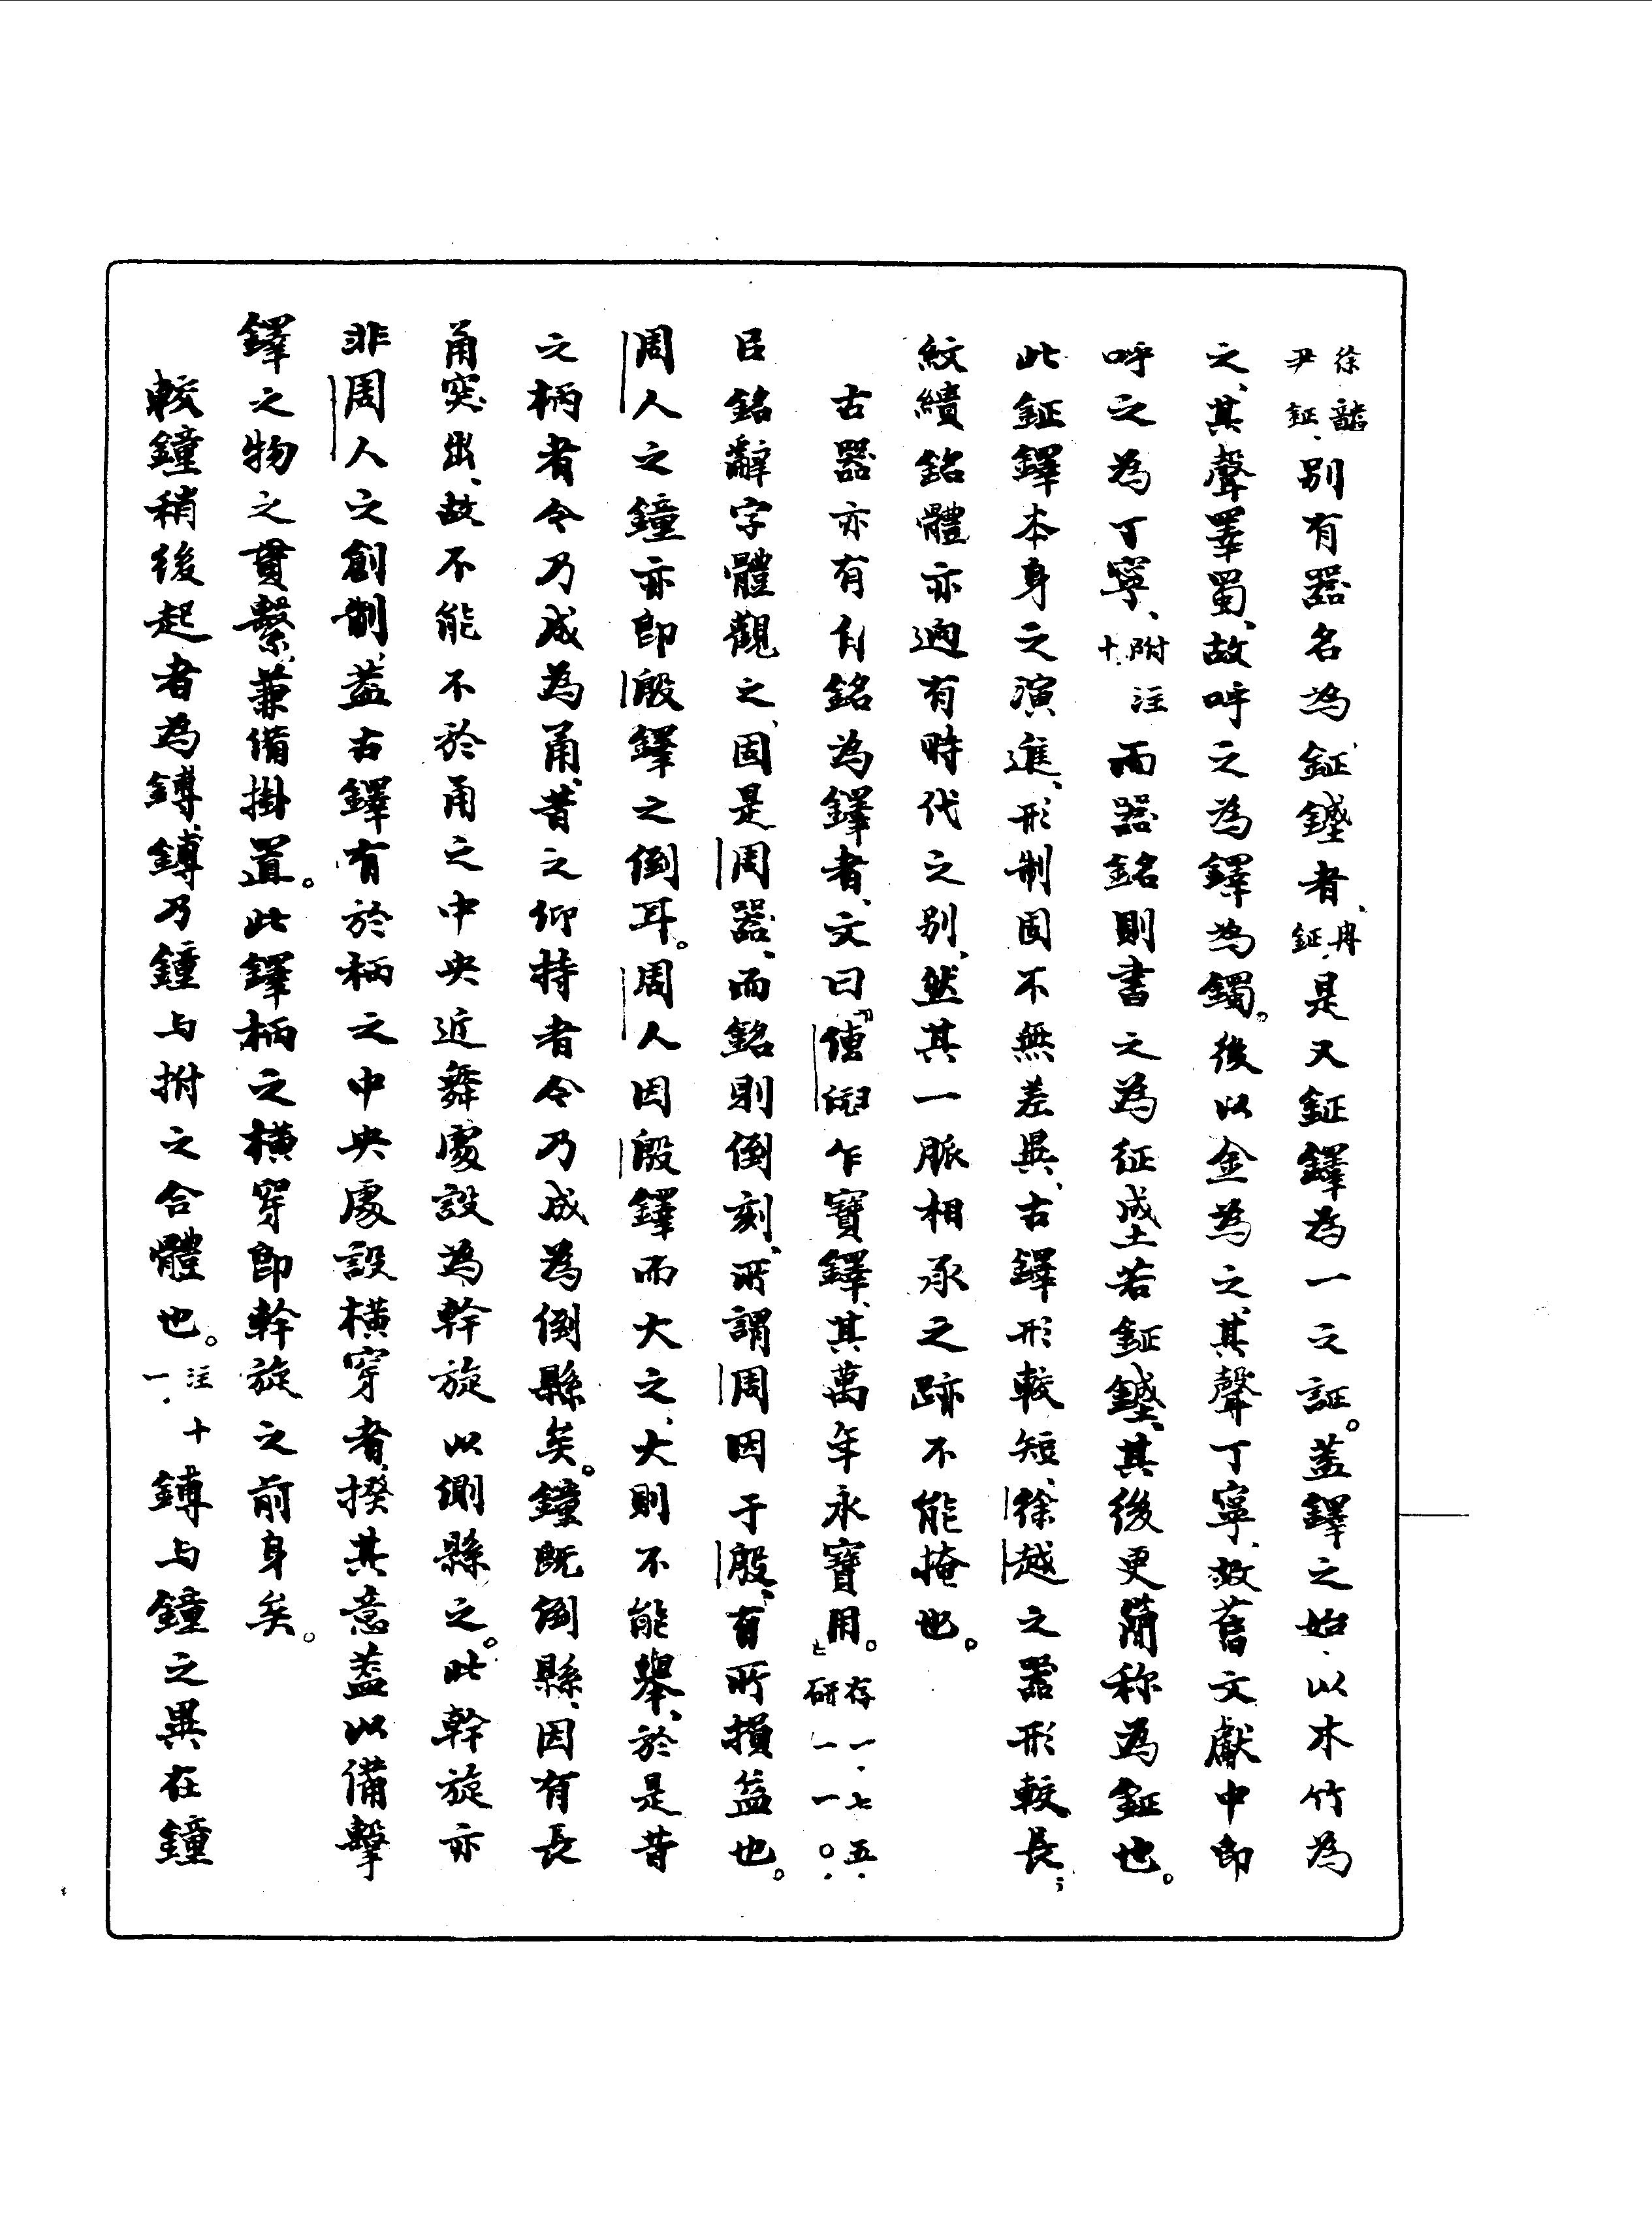 徐𧊒尹鉦．別有器名為鉦䥭者、冉鉦．是又鉦鐸為一之証。蓋鐸之始．以木竹為
之、其聲睪蜀、故呼之為鐸為鐲。後以金為之、其聲丁寧、故舊文獻中即
呼之為丁寧、附注十．而器銘則書之為征城若鉦䥭、其後更簡称為鉦也。
此鉦鐸本身之演進、形制固不無差異、古鐸形較短、徐越之器形較長；
紋繢銘體亦迥有時代之别、然其一脈相承之跡不能掩也。
古器亦有自銘為鐸者、文曰『㑀𠊱乍寶鐸、其萬年永寶用。』存一．七五．研一一一〇．
㠯銘辭字體觀之、固是周器、而銘則倒刻、所謂周因于殷、有所損益也。
周人之鐘亦即殷鐸之倒耳。周人因殷鐸而大之、大則不能舉、於是昔
之柄者令乃成為甬、昔之仰持者令乃成為倒縣矣。鐘既倒縣、因有長
甬突出、故不能不於甬之中央近舞處設為幹旋以側縣之。此幹旋亦
非周人之創制、蓋古鐸有於柄之中央處設橫穿者、揆其意蓋以備擊
鐸之物之貫繫、兼備掛置。此鐸柄之橫穿即幹旋之前身矣。
較鐘稍後起者為鎛、鎛乃鐘与拊之合體也。注十一．鎛与鐘之異在鐘